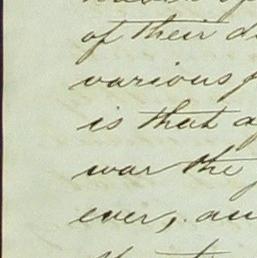 of their d
various f
is that a
war the
ever, au